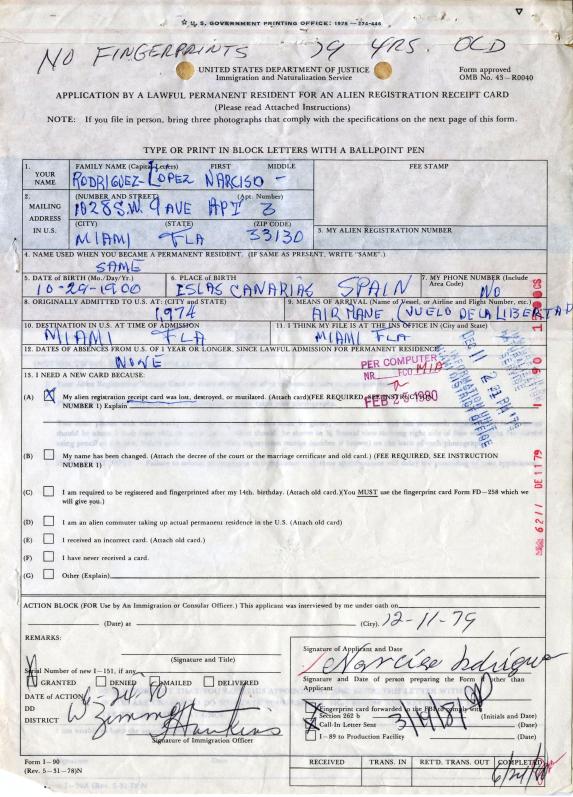 ☆ U. S. GOVERNMENT PRINTING OFFICE: 1978 — 274-446
NO FINGERPRINTS 79 YRS. OLD
UNITED STATES DEPARTMENT OF JUSTICE
Immigration and Naturalization Service
Form approved
OMB No. 43—R0040
APPLICATION BY A LAWFUL PERMANENT RESIDENT FOR AN ALIEN REGISTRATION RECEIPT CARD
(Please read Attached Instructions)
NOTE: If you file in person, bring three photographs that comply with the specifications on the next page of this form.
TYPE OR PRINT IN BLOCK LETTERS WITH A BALLPOINT PEN
1. YOUR NAME
FAMILY NAME (Capital Letters) FIRST MIDDLE
RODRIGUEZ-LOPEZ NARCISO -
FEE STAMP
2. MAILING ADDRESS IN U.S.
(NUMBER AND STREET) (Apt. Number)
1028 S.W. 9 AVE APT 3
(CITY) (STATE) (ZIP CODE)
MIAMI FLA 33130
3. MY ALIEN REGISTRATION NUMBER
4. NAME USED WHEN YOU BECAME A PERMANENT RESIDENT. (IF SAME AS PRESENT, WRITE "SAME".)
SAME
5. DATE OF BIRTH (Mo./Day/Yr.) 6. PLACE OF BIRTH 7. MY PHONE NUMBER (Include Area Code)
10-29-1900 ISLAS CANARIAS SPAIN NO
8. ORIGINALLY ADMITTED TO U.S. AT: (CITY and STATE) 9. MEANS OF ARRIVAL (Name of Vessel, or Airline and Flight Number, etc.)
1974 AIRPLANE (VUELO DE LA LIBERTAD
10. DESTINATION IN U.S. AT TIME OF ADMISSION 11. I THINK MY FILE IS AT THE INS OFFICE IN (City and State)
MIAMI FLA MIAMI FLA
12. DATES OF ABSENCES FROM U.S. OF 1 YEAR OR LONGER, SINCE LAWFUL ADMISSION FOR PERMANENT RESIDENCE
NONE
PER COMPUTER
NR FCO MIA
FEB 28 1980
13. I NEED A NEW CARD BECAUSE:
(A) X My alien registration receipt card was lost, destroyed, or mutilated. (Attach card)(FEE REQUIRED, SEE INSTRUCTION
NUMBER 1) Explain
(B) My name has been changed. (Attach the decree of the court or the marriage certificate and old card.) (FEE REQUIRED, SEE INSTRUCTION
NUMBER 1)
(C) I am required to be registered and fingerprinted after my 14th. birthday. (Attach old card.)(You MUST use the fingerprint card Form FD—258 which we
will give you.)
(D) I am an alien commuter taking up actual permanent residence in the U.S. (Attach old card)
(E) I received an incorrect card. (Attach old card.)
(F) I have never received a card.
(G) Other (Explain)
DE 11 79
ACTION BLOCK (FOR Use by An Immigration or Consular Officer.) This applicant was interviewed by me under oath on
(Date) at (City). 12-11-79
REMARKS:
(Signature and Title)
Serial Number of new I—151, if any
GRANTED DENIED MAILED DELIVERED
DATE OF ACTION
DD
DISTRICT
Signature of Immigration Officer
Signature of Applicant and Date
Signature and Date of person preparing the Form if other than
Applicant
Fingerprint card forwarded to the FBI to comply with
Section 262 b (Initials and Date)
Call-In Letter Sent (Date)
I—89 to Production Facility (Date)
Form I—90
(Rev. 5—31—78)N
RECEIVED TRANS. IN RET'D. TRANS. OUT COMPLETED